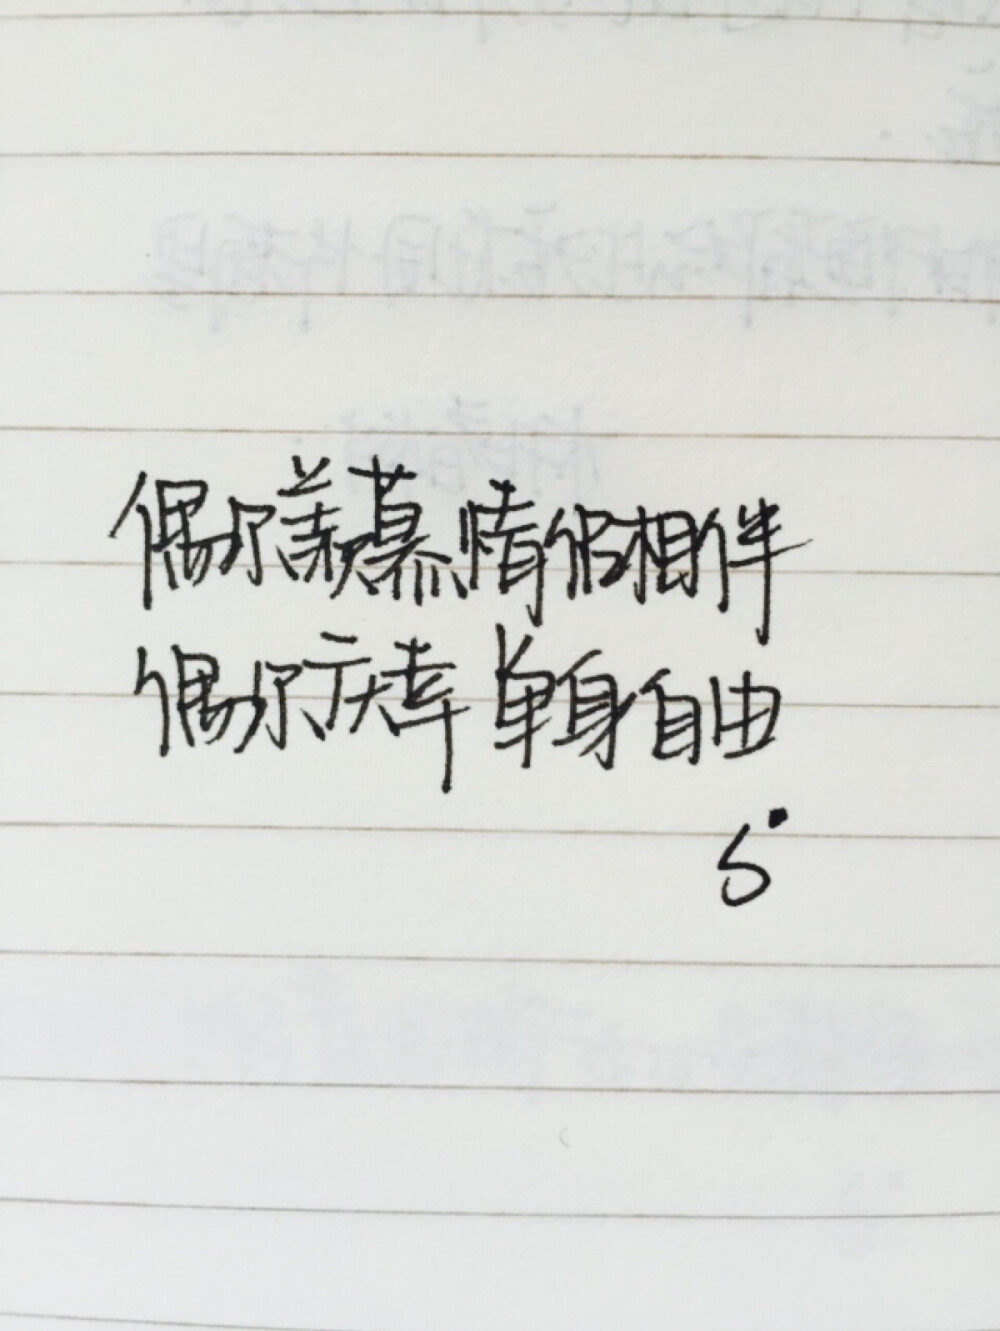 偶尔羡慕情侣相伴
偶尔庆幸单身自由
S